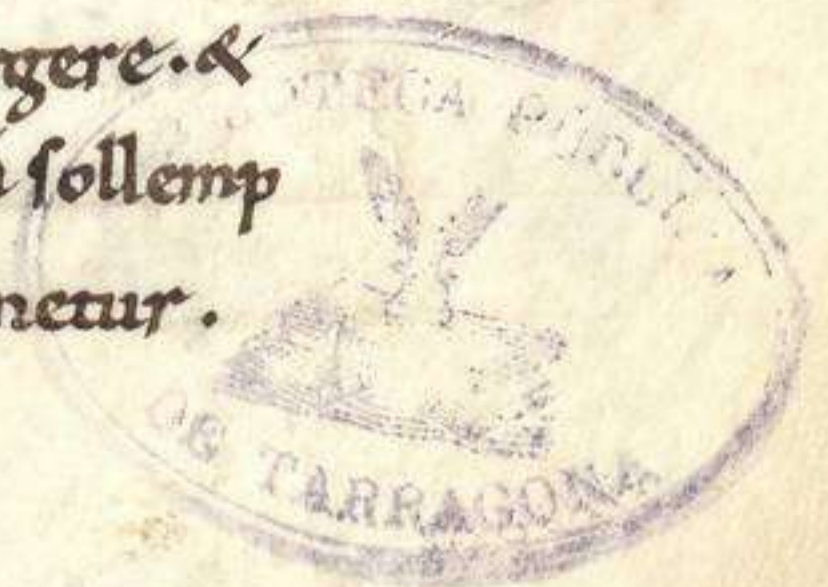 rgere · &
sollemp
netur .
BIBLIOTECA PUBLICA
DE TARRAGONA